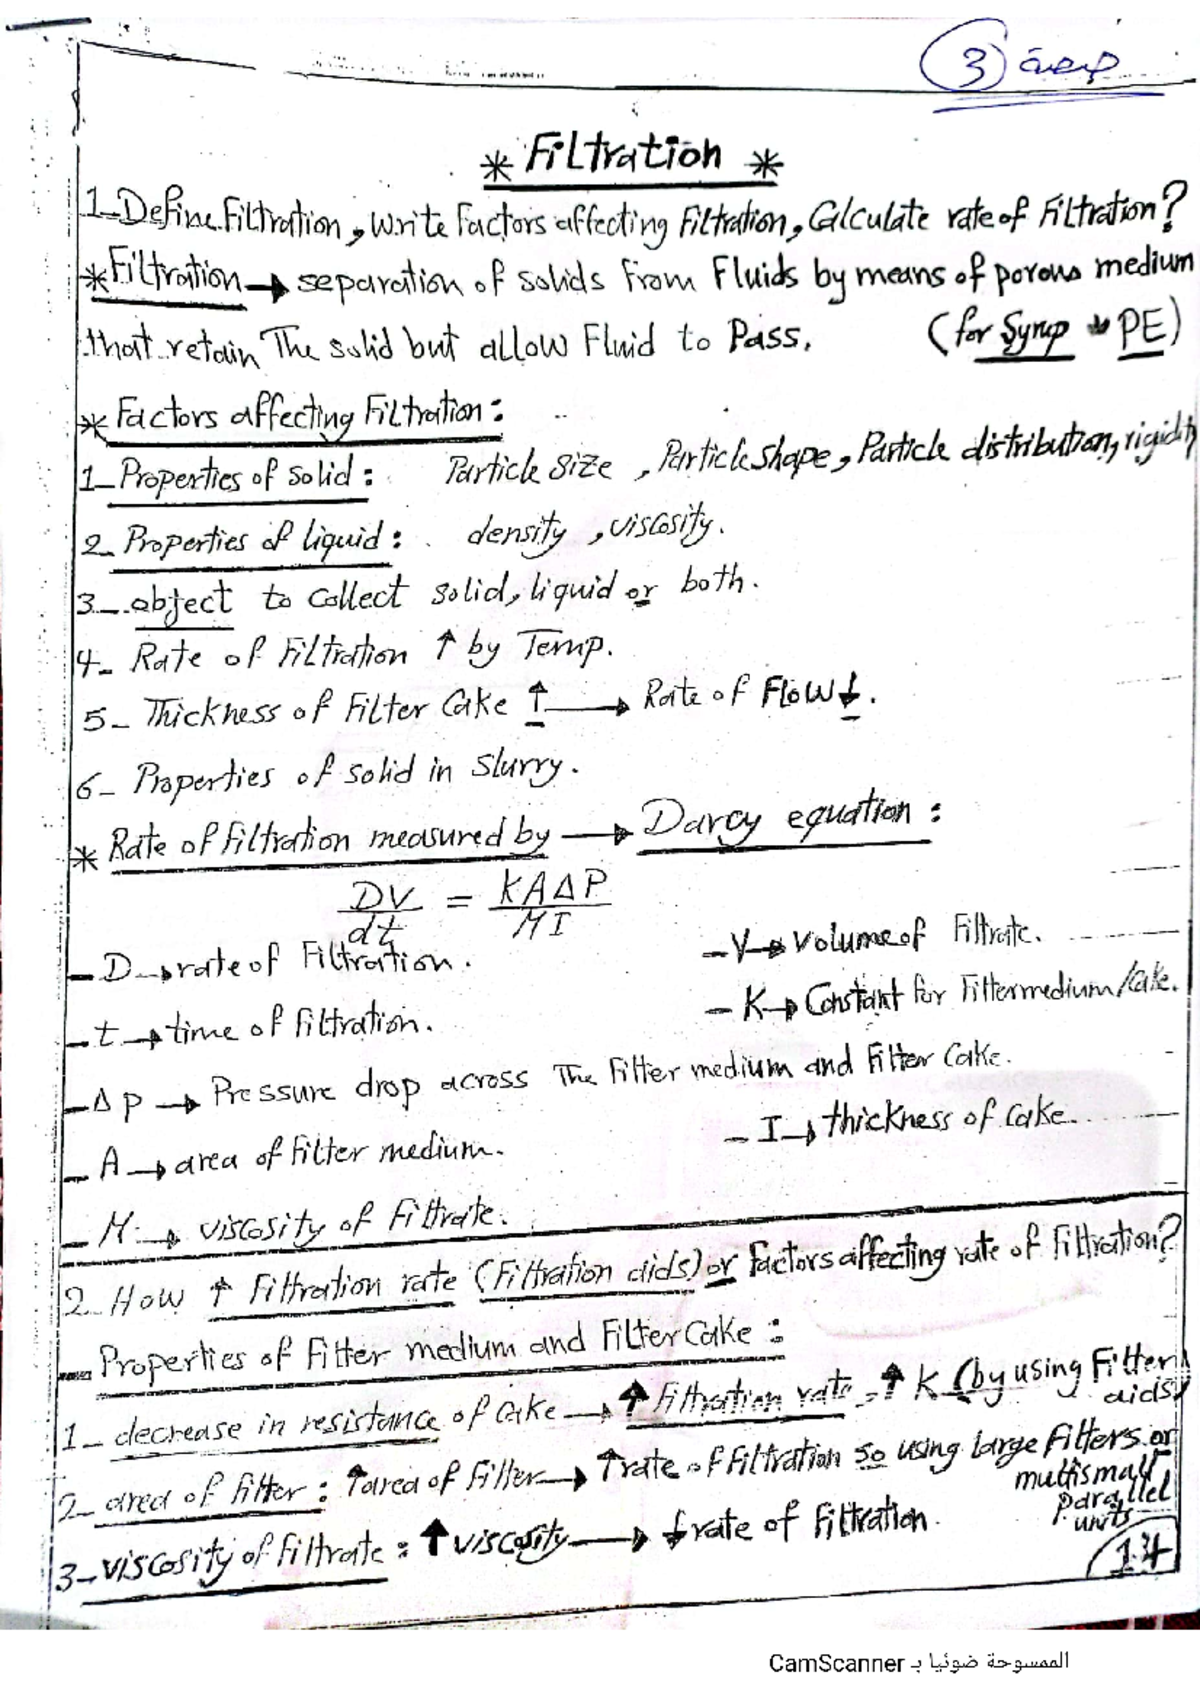 3 جمعة
* Filtration *
1- Define Filtration, Write Factors affecting Filtration, Calculate rate of Filtration?
* Filtration → separation of solids from Fluids by means of porous medium
that retain The solid but allow Fluid to Pass. (for Syrup PE)
* Factors affecting Filtration:
1- Properties of solid: Particle size, Particle shape, Particle distribution, rigidity
2- Properties of liquid: density, viscosity.
3- object to collect solid, liquid or both.
4- Rate of Filtration ↑ by Temp.
5- Thickness of Filter Cake ↑ → Rate of Flow ↓.
6- Properties of solid in slurry.
* Rate of filtration measured by → Darcy equation:
DV/dt = KAΔP/MI
- D → rate of Filtration. - V → volume of Filtrate.
- t → time of filtration. - K → Constant for Filter medium/cake.
- ΔP → Pressure drop across The Filter medium and Filter Cake.
- A → area of filter medium. - I → thickness of cake.
- M → viscosity of Filtrate.
2- How ↑ Filtration rate (Filtration aids) or factors affecting rate of filtration?
- Properties of Filter medium and Filter Cake:
1- decrease in resistance of cake → ↑ Filtration rate, ↑ K (by using Filter aids)
2- area of filter: ↑ area of Filter → ↑ rate of Filtration so using large Filters or multismall parallel units
3- viscosity of filtrate: ↑ viscosity → ↓ rate of Filtration.
14
الممسوحة ضوئيا بـ CamScanner